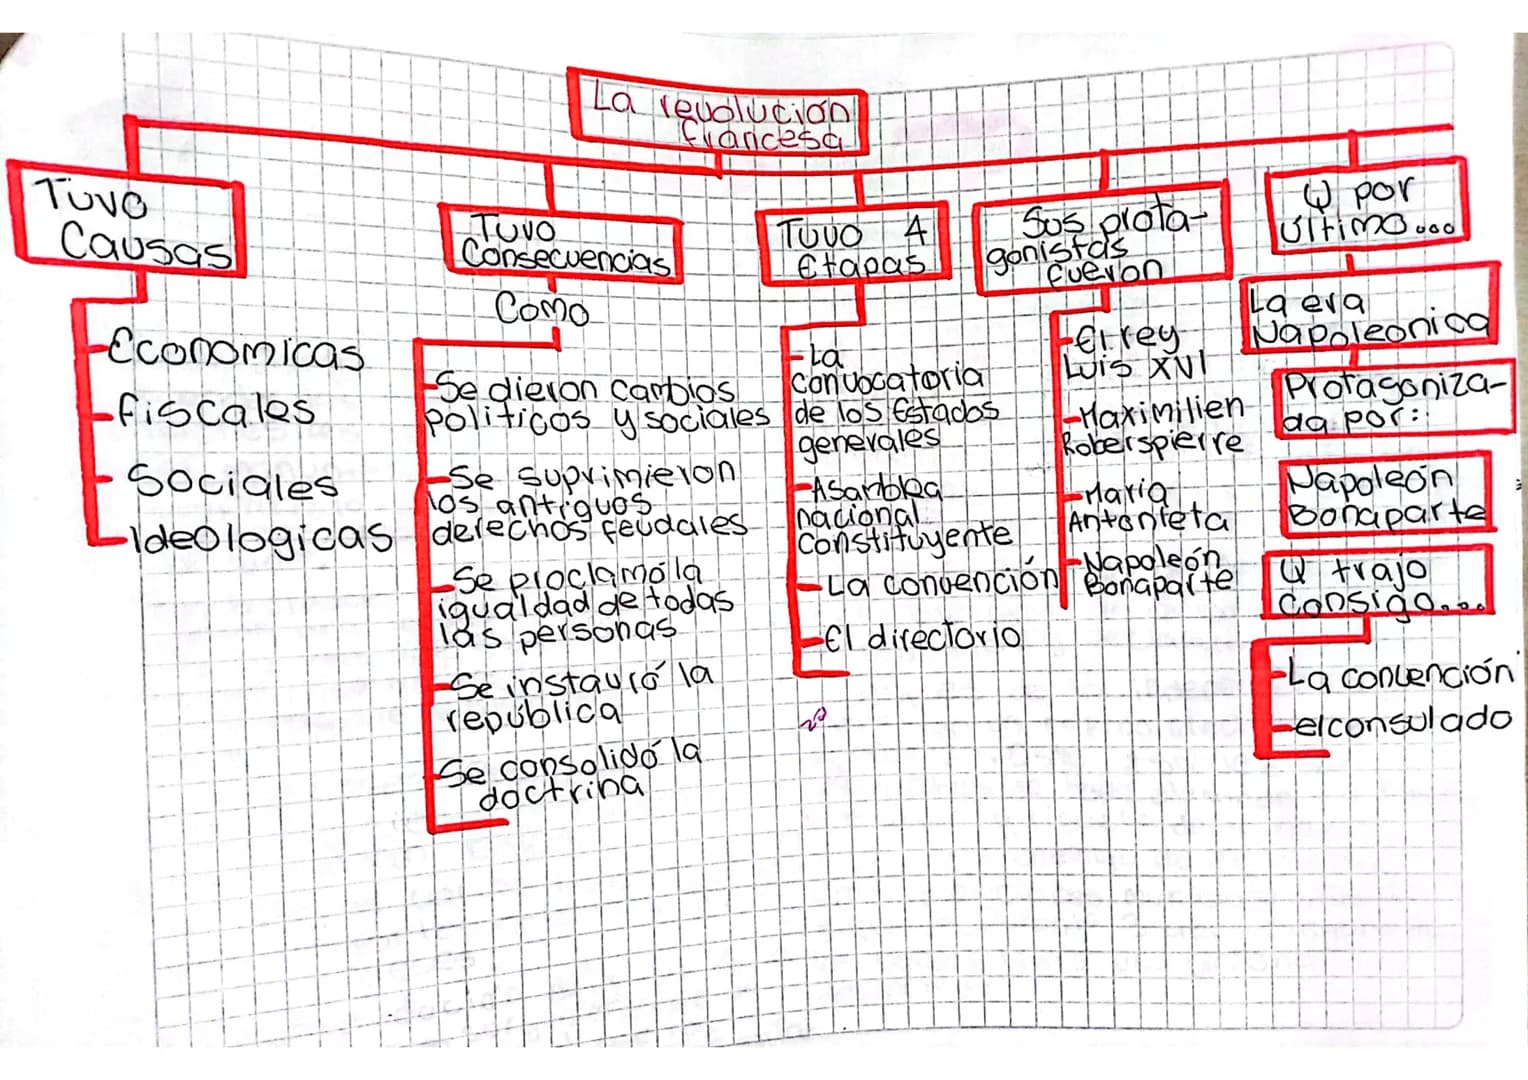 La revolución
francesa
Tuvo
Causas
-Economicas
-fiscales
- Sociales
-Ideologicas
Tuvo
Consecuencias
Como
-Se dieron cambios
politicos y sociales
-Se suprimieron
los antiguos
derechos feudales
-Se proclamó la
igualdad de todas
las personas
-Se instauró la
republica
-Se consolidó la
doctrina
Tuvo 4
Etapas
-La
convocatoria
de los Estados
generales
-Asamblea
nacional
constituyente
-La convención
-El directorio
Sus prota-
gonistas
fueron
-El rey
Luis XVI
-Maximilien
Roberspierre
-Maria
Antonieta
-Napoleón
Bonaparte
Y por
último...
La era
Napoleonica
Protagoniza-
da por:
Napoleón
Bonaparte
Y trajo
consigo...
-La convención
-el consulado